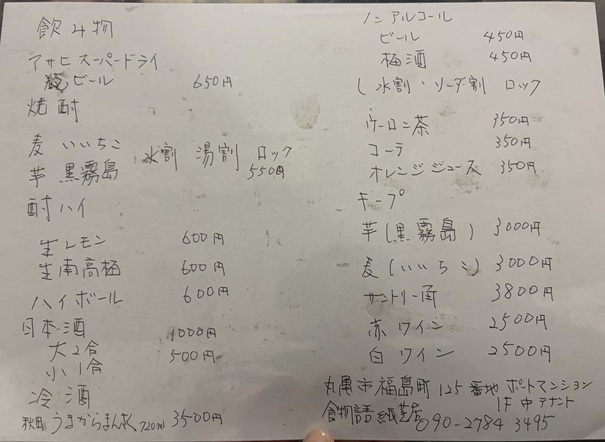 飲み物
アサヒスーパードライ
ビール 650円
焼酎
麦 いいちこ
芋 黒霧島 水割 湯割 ロック
550円
酎ハイ
生レモン 600円
生南高梅 600円
ハイボール 600円
日本酒 1000円
大2合 500円
小1合
冷酒
秋田 うまからまんさく 720ml 3500円
ノンアルコール
ビール 450円
梅酒 450円
水割・ソーダ割 ロック
ウーロン茶 350円
コーラ 350円
オレンジジュース 350円
キープ
芋(黒霧島) 3000円
麦(いいちこ) 3000円
サントリー角 3800円
赤ワイン 2500円
白ワイン 2500円
丸亀市福島町125番地 ポートマンション
1F 中テナント
食物語 紙芝居 090-2784 3495